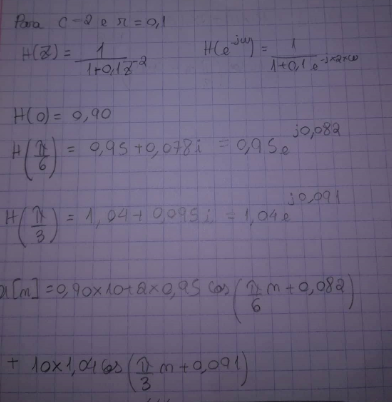 Para c=2 e r=0,1
H(z) = 1/(1+0,1z^-2) H(e^jω) = 1/(1+0,1e^-j×2×ω)
H(0) = 0,90
H(π/6) = 0,95+0,078i = 0,95e^j0,082
H(π/3) = 1,04+0,095i = 1,04e^j0,091
[n] = 0,90×10+2×0,95 cos(π/6 n+0,082)
+ 10×1,04 cos(π/3 n+0,091)